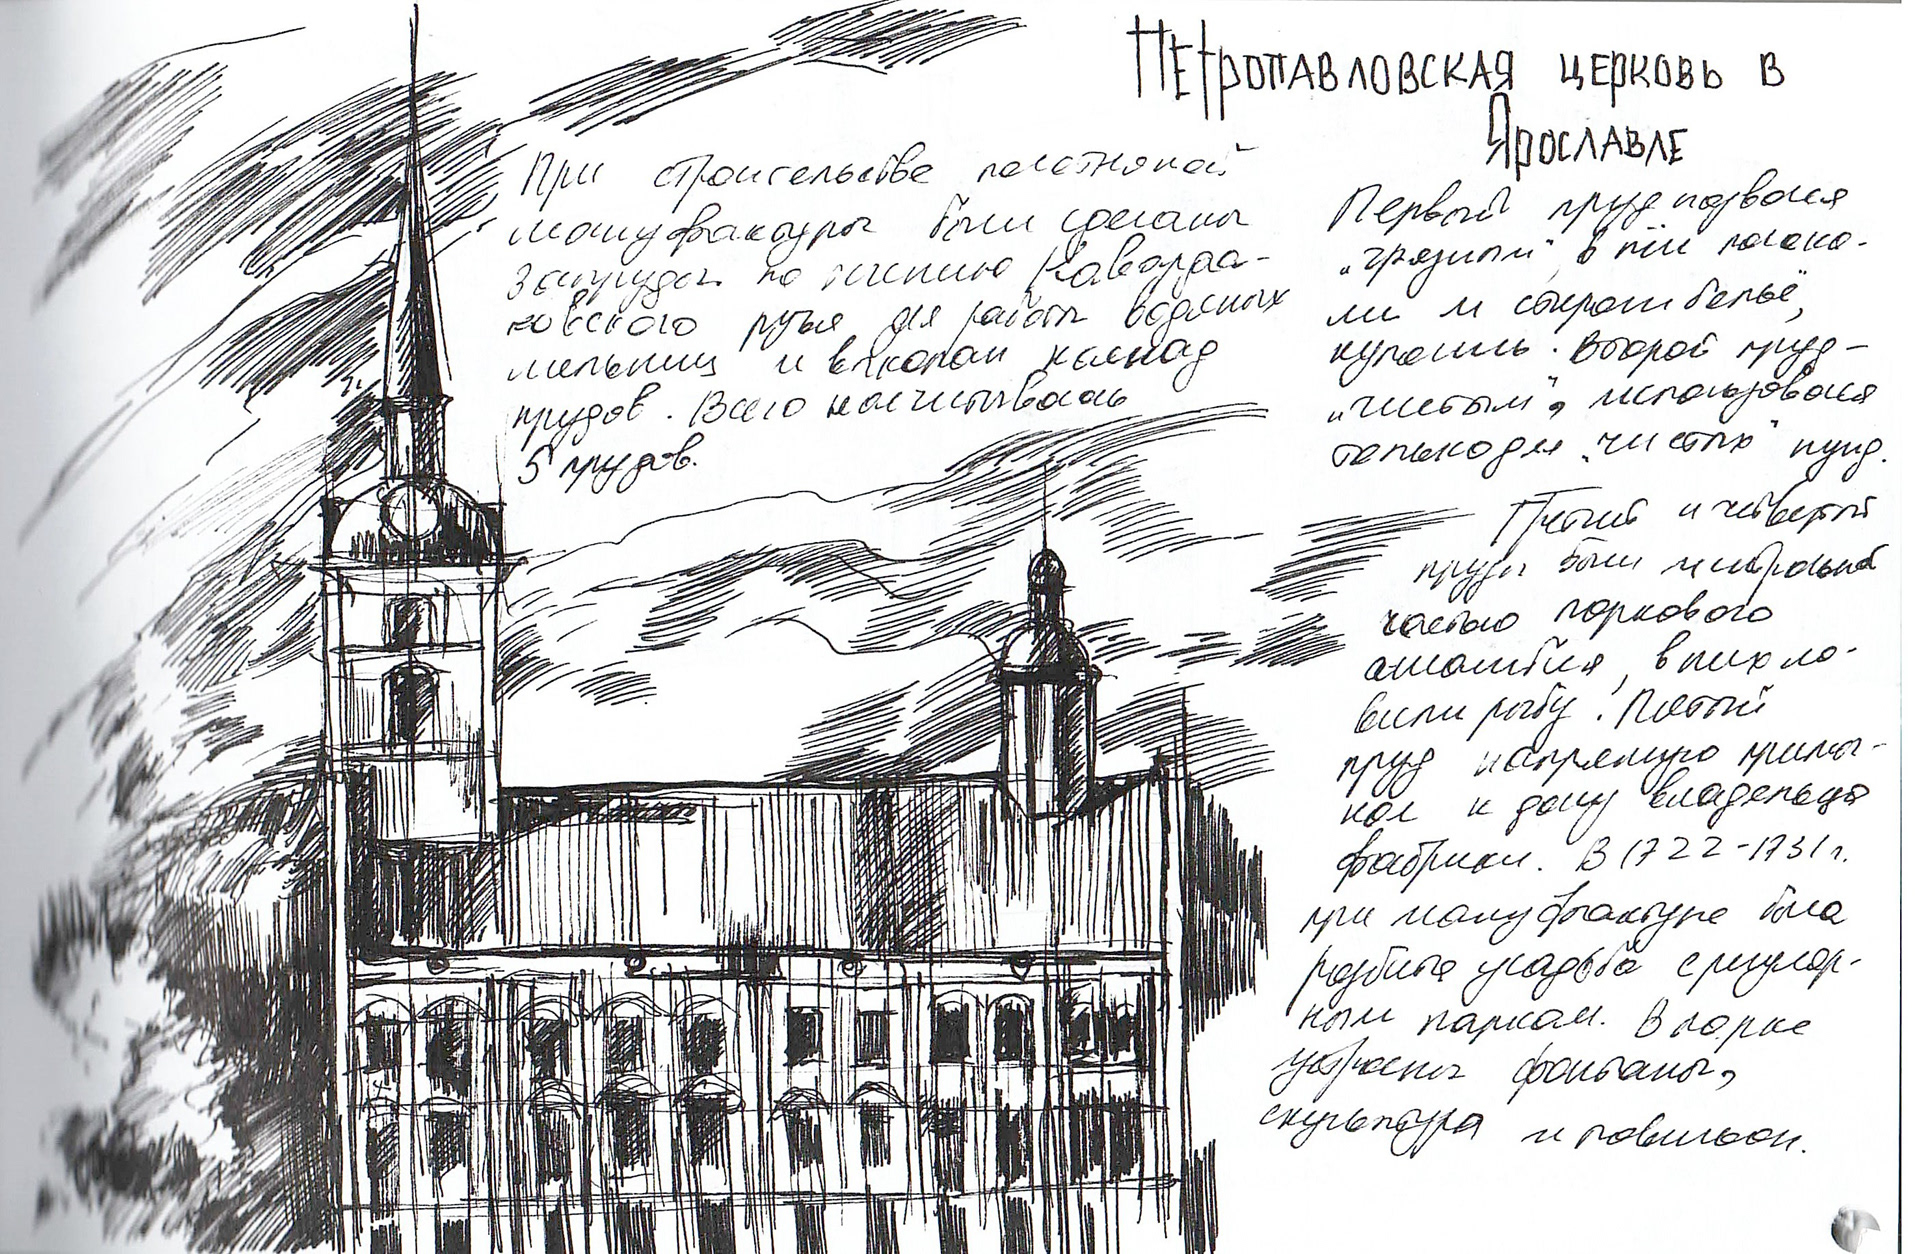 Петропавловская церковь в
Ярославле
При строительстве полотняной
мануфактуры были сделаны
запруды по течению Каварда-
ковского ручья для работы водяных
мельниц и вкопан каскад
прудов. Всего насчитывалось
5 прудов.
Первый пруд назывался
"грязным", в нём полоска-
ли и стирали бельё,
купались. Второй пруд -
"чистым", использовался
только для "чистых" нужд.
Третий и четвёртый
пруды были
частью паркового
ансамбля, в них ло-
вили рыбу. Пятый
пруд напрямую примы-
кал к дому владельца
фабрики. В 1722-1731 г.
при мануфактуре была
разбита усадьба с регуляр-
ным парком. В парке
устроены фонтаны,
скульптура и павильон.